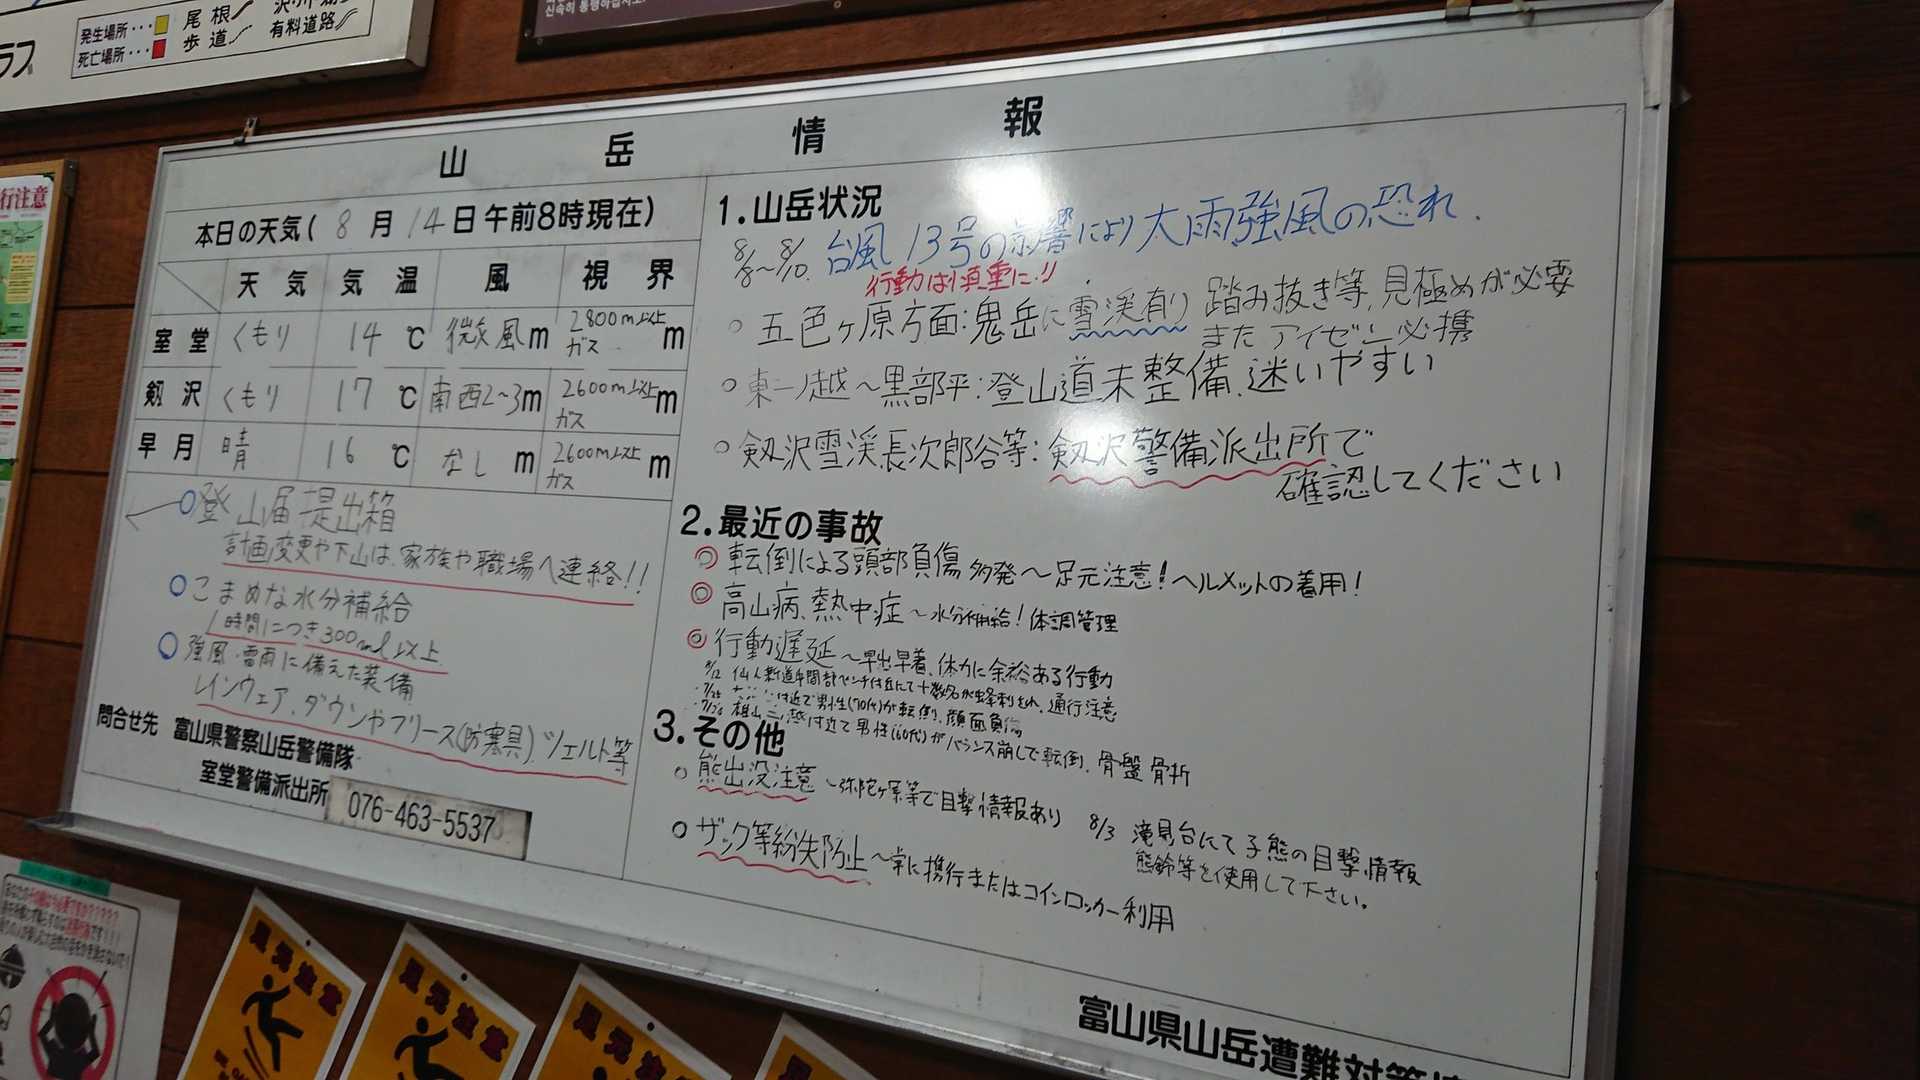 ラブ
発生場所・・・
死亡場所・・・
尾根
歩道
有料道路
行注意
山岳情報
本日の天気(8月14日午前8時現在)
天気 気温 風 視界
室堂 くもり 14℃ 微風m 2800m以上ガス m
剱沢 くもり 17℃ 南西2~3m 2600m以上ガス m
早月 晴 16℃ なし m 2600m以上ガス m
○登山届提出箱
計画変更や下山は、家族や職場へ連絡!!
○こまめな水分補給
1時間につき300ml以上
○強風・雷雨に備えた装備
レインウェア、ダウンやフリース(防寒具)、ツェルト等
問合せ先 富山県警察山岳警備隊
室堂警備派出所 076-463-5537
1.山岳状況
8/8~8/10. 台風13号の影響により大雨強風の恐れ.
行動は慎重に!!
○五色ヶ原方面:鬼岳に雪渓有り 踏み抜き等、見極めが必要
またアイゼン必携
○東一ノ越~黒部平:登山道未整備、迷いやすい
○剱沢雪渓、長次郎谷等:剱沢警備派出所で
確認してください
2.最近の事故
◎転倒による頭部負傷多発~足元注意!ヘルメットの着用!
◎高山病、熱中症~水分補給!体調管理
◎行動遅延~早出早着、体力に余裕ある行動
8/12 仙人新道中間部ベンチ付近にて十数名が蜂刺され、通行注意
付近で男性(70代)が転倒、顔面負傷
・7/26 雄山三ノ越付近で男性(60代)がバランス崩して転倒、骨盤骨折
3.その他
○熊出没注意~弥陀ヶ原等で目撃情報あり 8/3 滝見台にて子熊の目撃情報
熊鈴等を使用して下さい。
○ザック等紛失防止~常に携行またはコインロッカー利用
富山県山岳遭難対策
足元注意
足元注意
足元注意